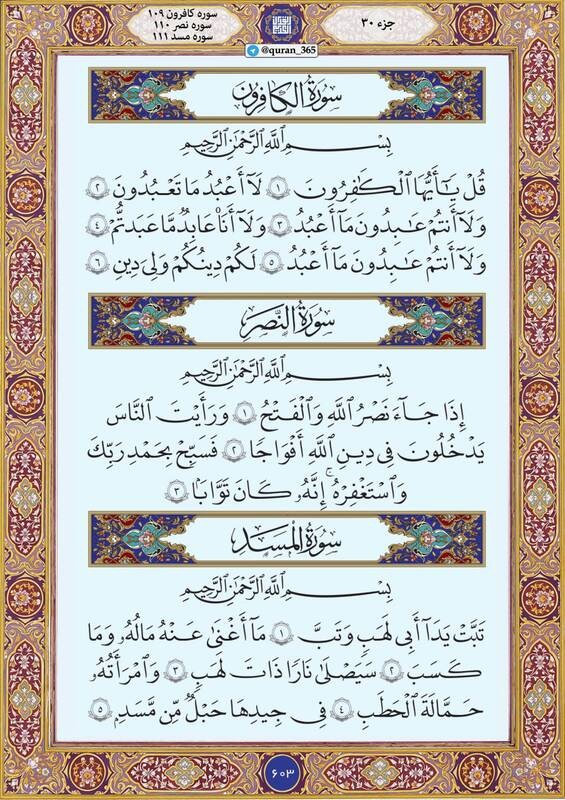 جزء ۳۰
سوره کافرون ۱۰۹
سوره نصر ۱۱۰
سوره مسد ۱۱۱
@quran_365
سُورَةُ الكَافِرُونَ
بِسْمِ ٱللَّهِ ٱلرَّحْمَٰنِ ٱلرَّحِيمِ
قُلْ يَٰٓأَيُّهَا ٱلْكَٰفِرُونَ ١ لَآ أَعْبُدُ مَا تَعْبُدُونَ ٢
وَلَآ أَنتُمْ عَٰبِدُونَ مَآ أَعْبُدُ ٣ وَلَآ أَنَا۠ عَابِدٌ مَّا عَبَدتُّمْ ٤
وَلَآ أَنتُمْ عَٰبِدُونَ مَآ أَعْبُدُ ٥ لَكُمْ دِينُكُمْ وَلِىَ دِينِ ٦
سُورَةُ النَّصْرِ
بِسْمِ ٱللَّهِ ٱلرَّحْمَٰنِ ٱلرَّحِيمِ
إِذَا جَآءَ نَصْرُ ٱللَّهِ وَٱلْفَتْحُ ١ وَرَأَيْتَ ٱلنَّاسَ
يَدْخُلُونَ فِى دِينِ ٱللَّهِ أَفْوَاجًا ٢ فَسَبِّحْ بِحَمْدِ رَبِّكَ
وَٱسْتَغْفِرْهُ ۚ إِنَّهُۥ كَانَ تَوَّابًۢا ٣
سُورَةُ المَسَدِ
بِسْمِ ٱللَّهِ ٱلرَّحْمَٰنِ ٱلرَّحِيمِ
تَبَّتْ يَدَآ أَبِى لَهَبٍ وَتَبَّ ١ مَآ أَغْنَىٰ عَنْهُ مَالُهُۥ وَمَا
كَسَبَ ٢ سَيَصْلَىٰ نَارًا ذَاتَ لَهَبٍ ٣ وَٱمْرَأَتُهُۥ
حَمَّالَةَ ٱلْحَطَبِ ٤ فِى جِيدِهَا حَبْلٌ مِّن مَّسَدٍۭ ٥
۶۰۳